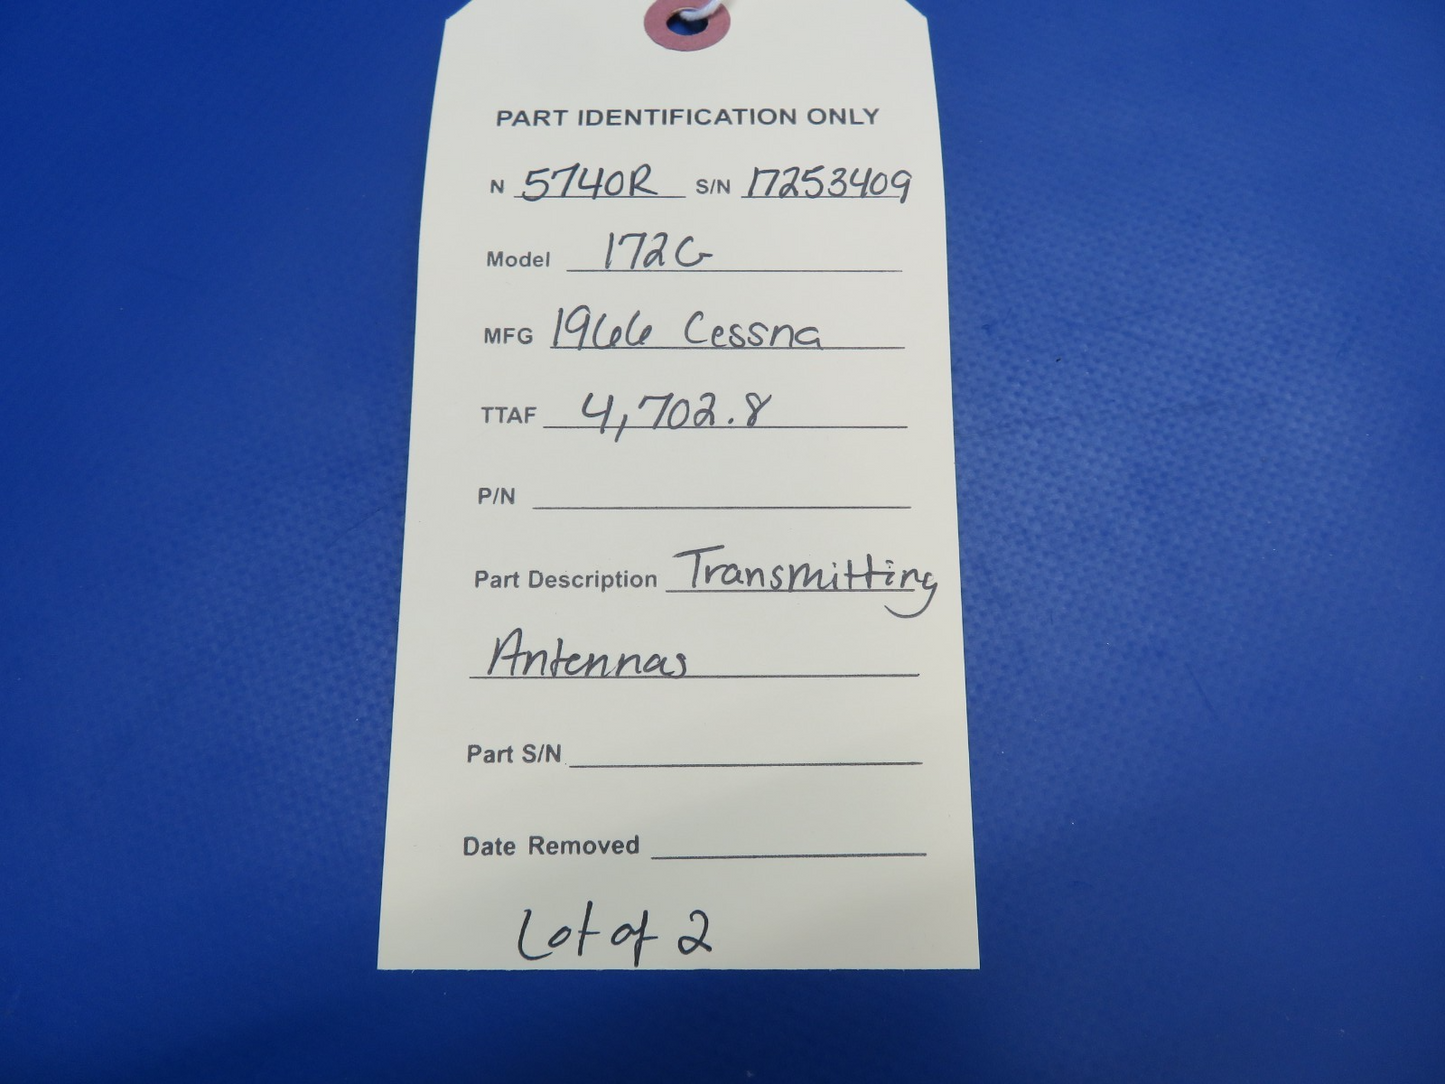 PART IDENTIFICATION ONLY
N 5740R S/N 17253409
Model 172G
MFG 1966 Cessna
TTAF 4,702.8
P/N
Part Description Transmitting
Antennas
Part S/N
Date Removed
Lot of 2